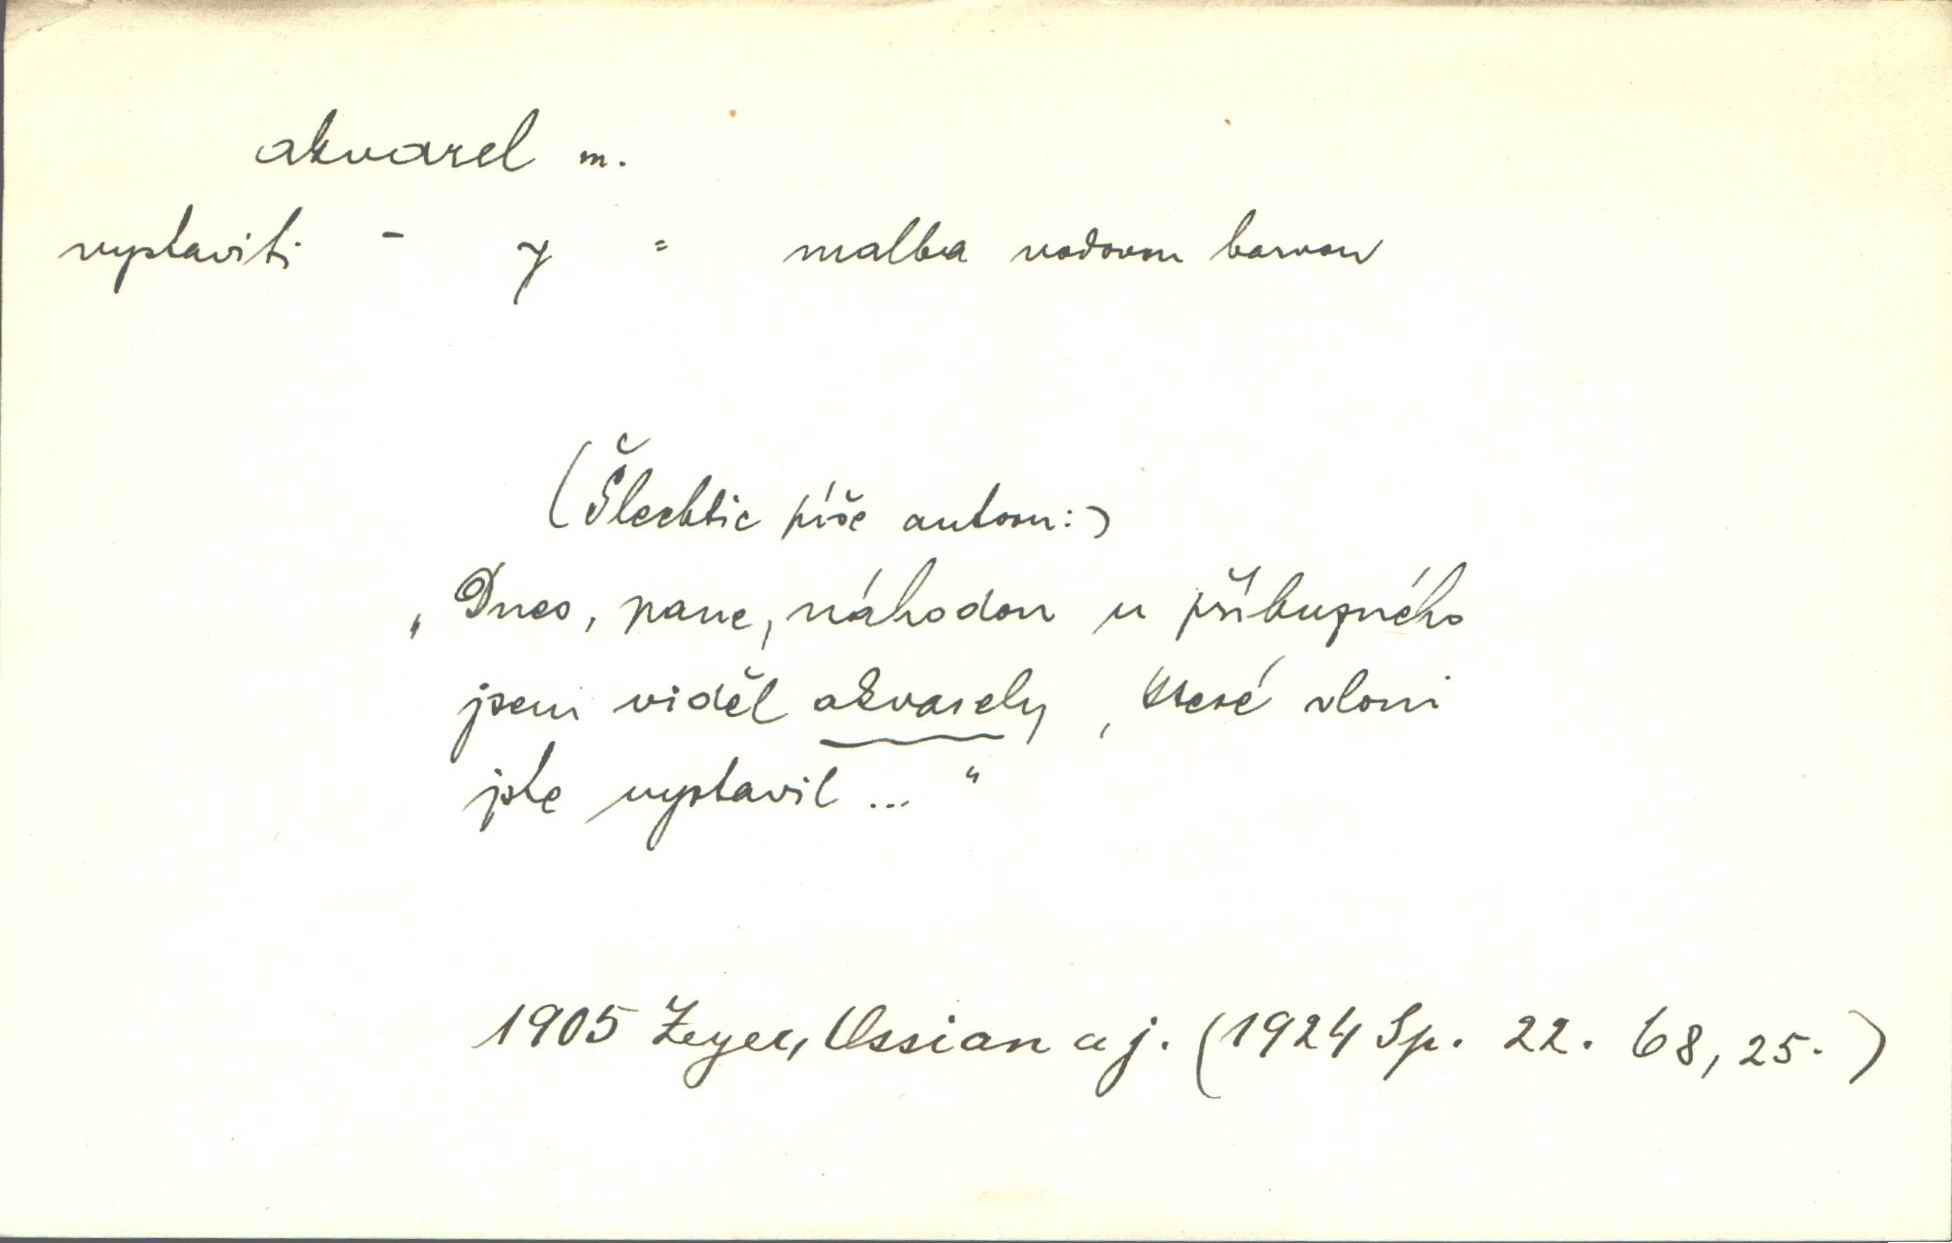 akvarel m.
vystaviti - y = malba vodovou barvou
(Šlechtic píše autoru:)
„Dnes, pane, náhodou u příbuzného
jsem viděl akvarely, které vloni
jste vystavil ..."
1905 Zeyer, Ossian a j. (1924 Sp. 22. 68, 25.)